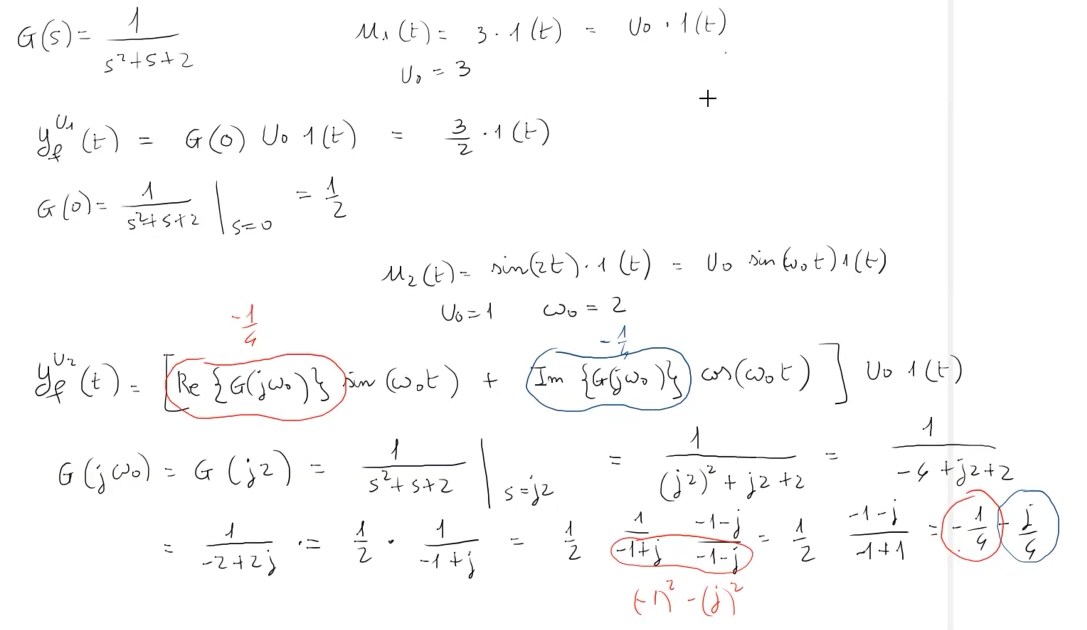 G(s) = 1/(s²+s+2)    u₁(t) = 3·1(t) = U₀·1(t)
U₀ = 3
+
y_f^{U₁}(t) = G(0) U₀ 1(t) = 3/2 · 1(t)
G(0) = 1/(s²+s+2) |_{s=0} = 1/2
u₂(t) = sin(2t)·1(t) = U₀ sin(ω₀t)1(t)
U₀=1    ω₀ = 2
-1/4    -1/4
y_f^{U₂}(t) = [Re{G(jω₀)} sin(ω₀t) + Im{G(jω₀)} cos(ω₀t)] U₀ 1(t)
G(jω₀) = G(j2) = 1/(s²+s+2) |_{s=j2} = 1/((j2)²+j2+2) = 1/(-4+j2+2)
= 1/(-2+2j) ·= 1/2 · 1/(-1+j) = 1/2 1/(-1+j) (-1-j)/(-1-j) = 1/2 (-1-j)/(-1+1) = -1/4 - j/4
(-1)² - (j)²